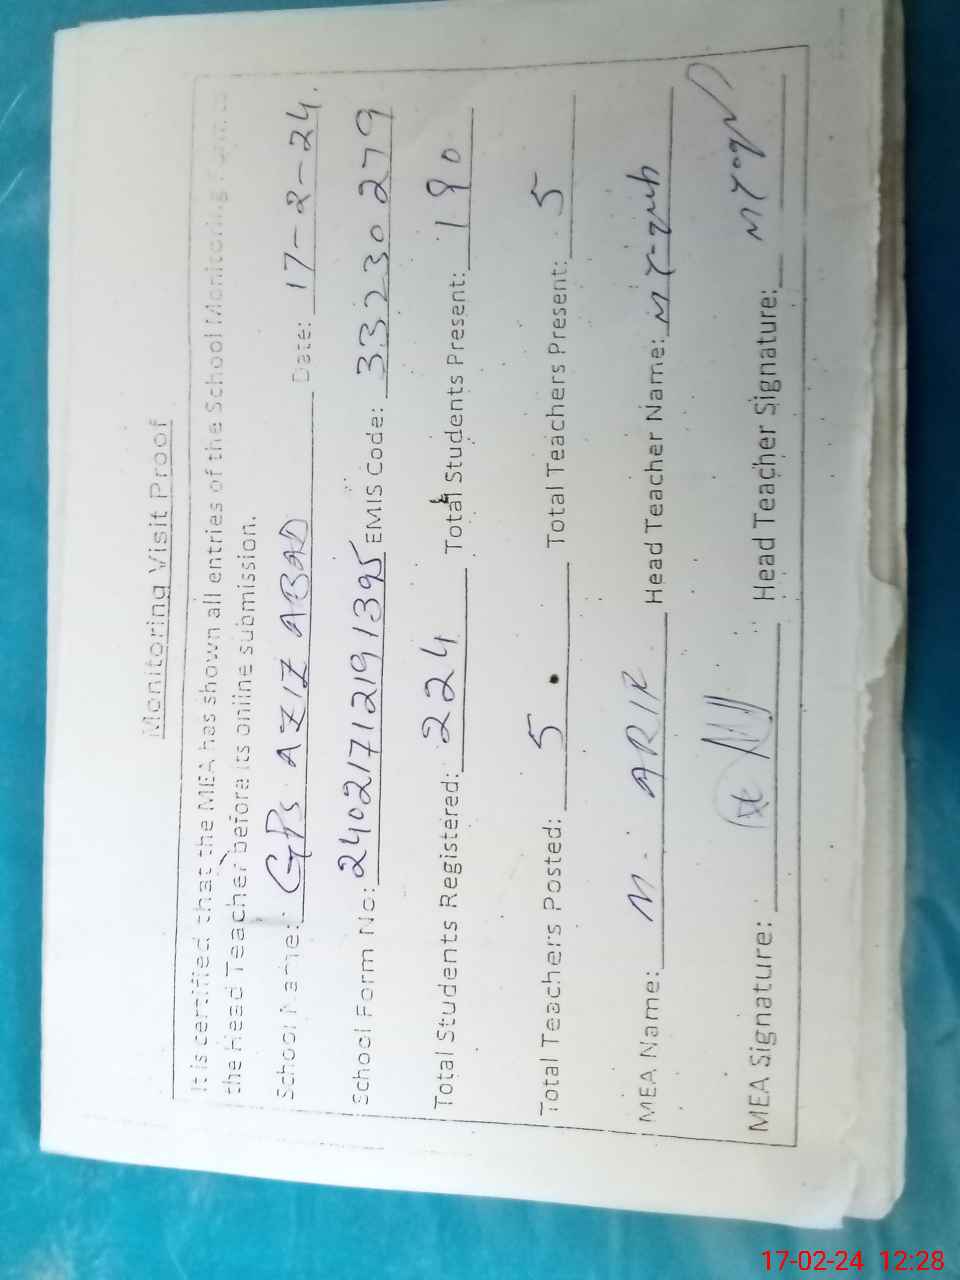 Monitoring Visit Proof
It is certified that the MEA has shown all entries of the School Monitoring Forms to
the Head Teacher before its online submission.
School Name: GPS AZIZ ABAD Date: 17-2-24.
School Form No: 24021712191395 EMIS Code: 33230279
Total Students Registered: 224 Total Students Present: 190
Total Teachers Posted: 5 Total Teachers Present: 5
MEA Name: M. ARIF Head Teacher Name: M Yaqub
MEA Signature: Head Teacher Signature: M Yaqub
17-02-24 12:28